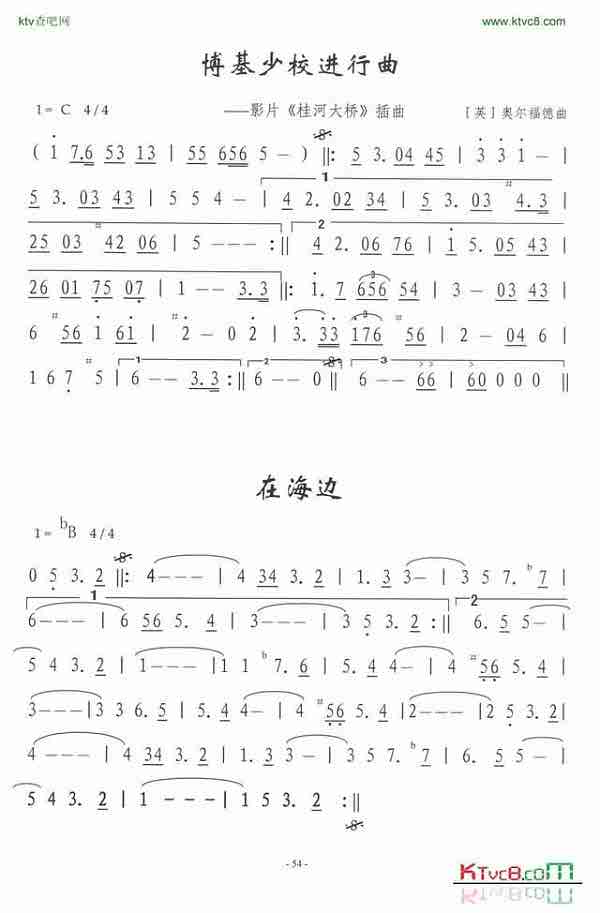 ktv查吧网
www.ktvc8.com
博基少校进行曲
1= C 4/4 ——影片《桂河大桥》插曲 [英]奥尔福德曲
( 1 7.6 53 13 | 55 556 5 — ) ‖: 5 3. 04 45 | 3 3 1 — |
5 3. 03 43 | 5 5 4 — | 4 2. 02 34 | 5 3. 03 #4.3 |
25 03 #42 06 | 5 — — — :‖ 4 2. 06 76 | 1 5. 05 43 |
26 01 75 07 | 1 — — 3.3 ‖: 1. 7 656 54 | 3 — 03 43 |
6 #56 1 61 | #2 — 0 2 | 3. 33 176 56 | 2 — 04 6 |
1 6 7 #5 | 6 — — 3.3 :‖ 6 — — 0 ‖ 6 — — 66 | 60 0 0 0 ‖
在海边
1= bB 4/4
0 5 3. 2 ‖: 4 — — — | 4 34 3. 2 | 1. 3 3 — | 3 5 7. b7 |
6 — — — | 6 56 5. 4 | 3 — — — | 3 4 3. 2 :‖ 6. 5 5 — |
5 4 3. 2 | 1 — — — | 1 1 b7. 6 | 5. 4 4 — | 4 #56 5. 4 |
3 — — — | 3 3 6. 5 | 5. 4 4 — | 4 #56 5. 4 | 2 — — — | 2 5 3. 2 |
4 — — — | 4 34 3. 2 | 1. 3 3 — | 3 5 7. b7 | 6. 5 5 — |
5 4 3. 2 | 1 — — — | 1 5 3. 2 :‖
- 54 -
KTVC8.COM